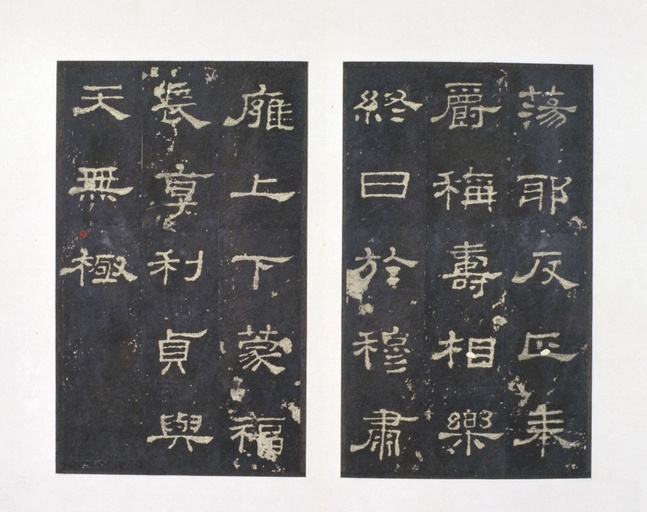 蕩耶反正奉
爵稱壽相樂
終日於穆肅
廱上下蒙福
長享利貞與
天無極